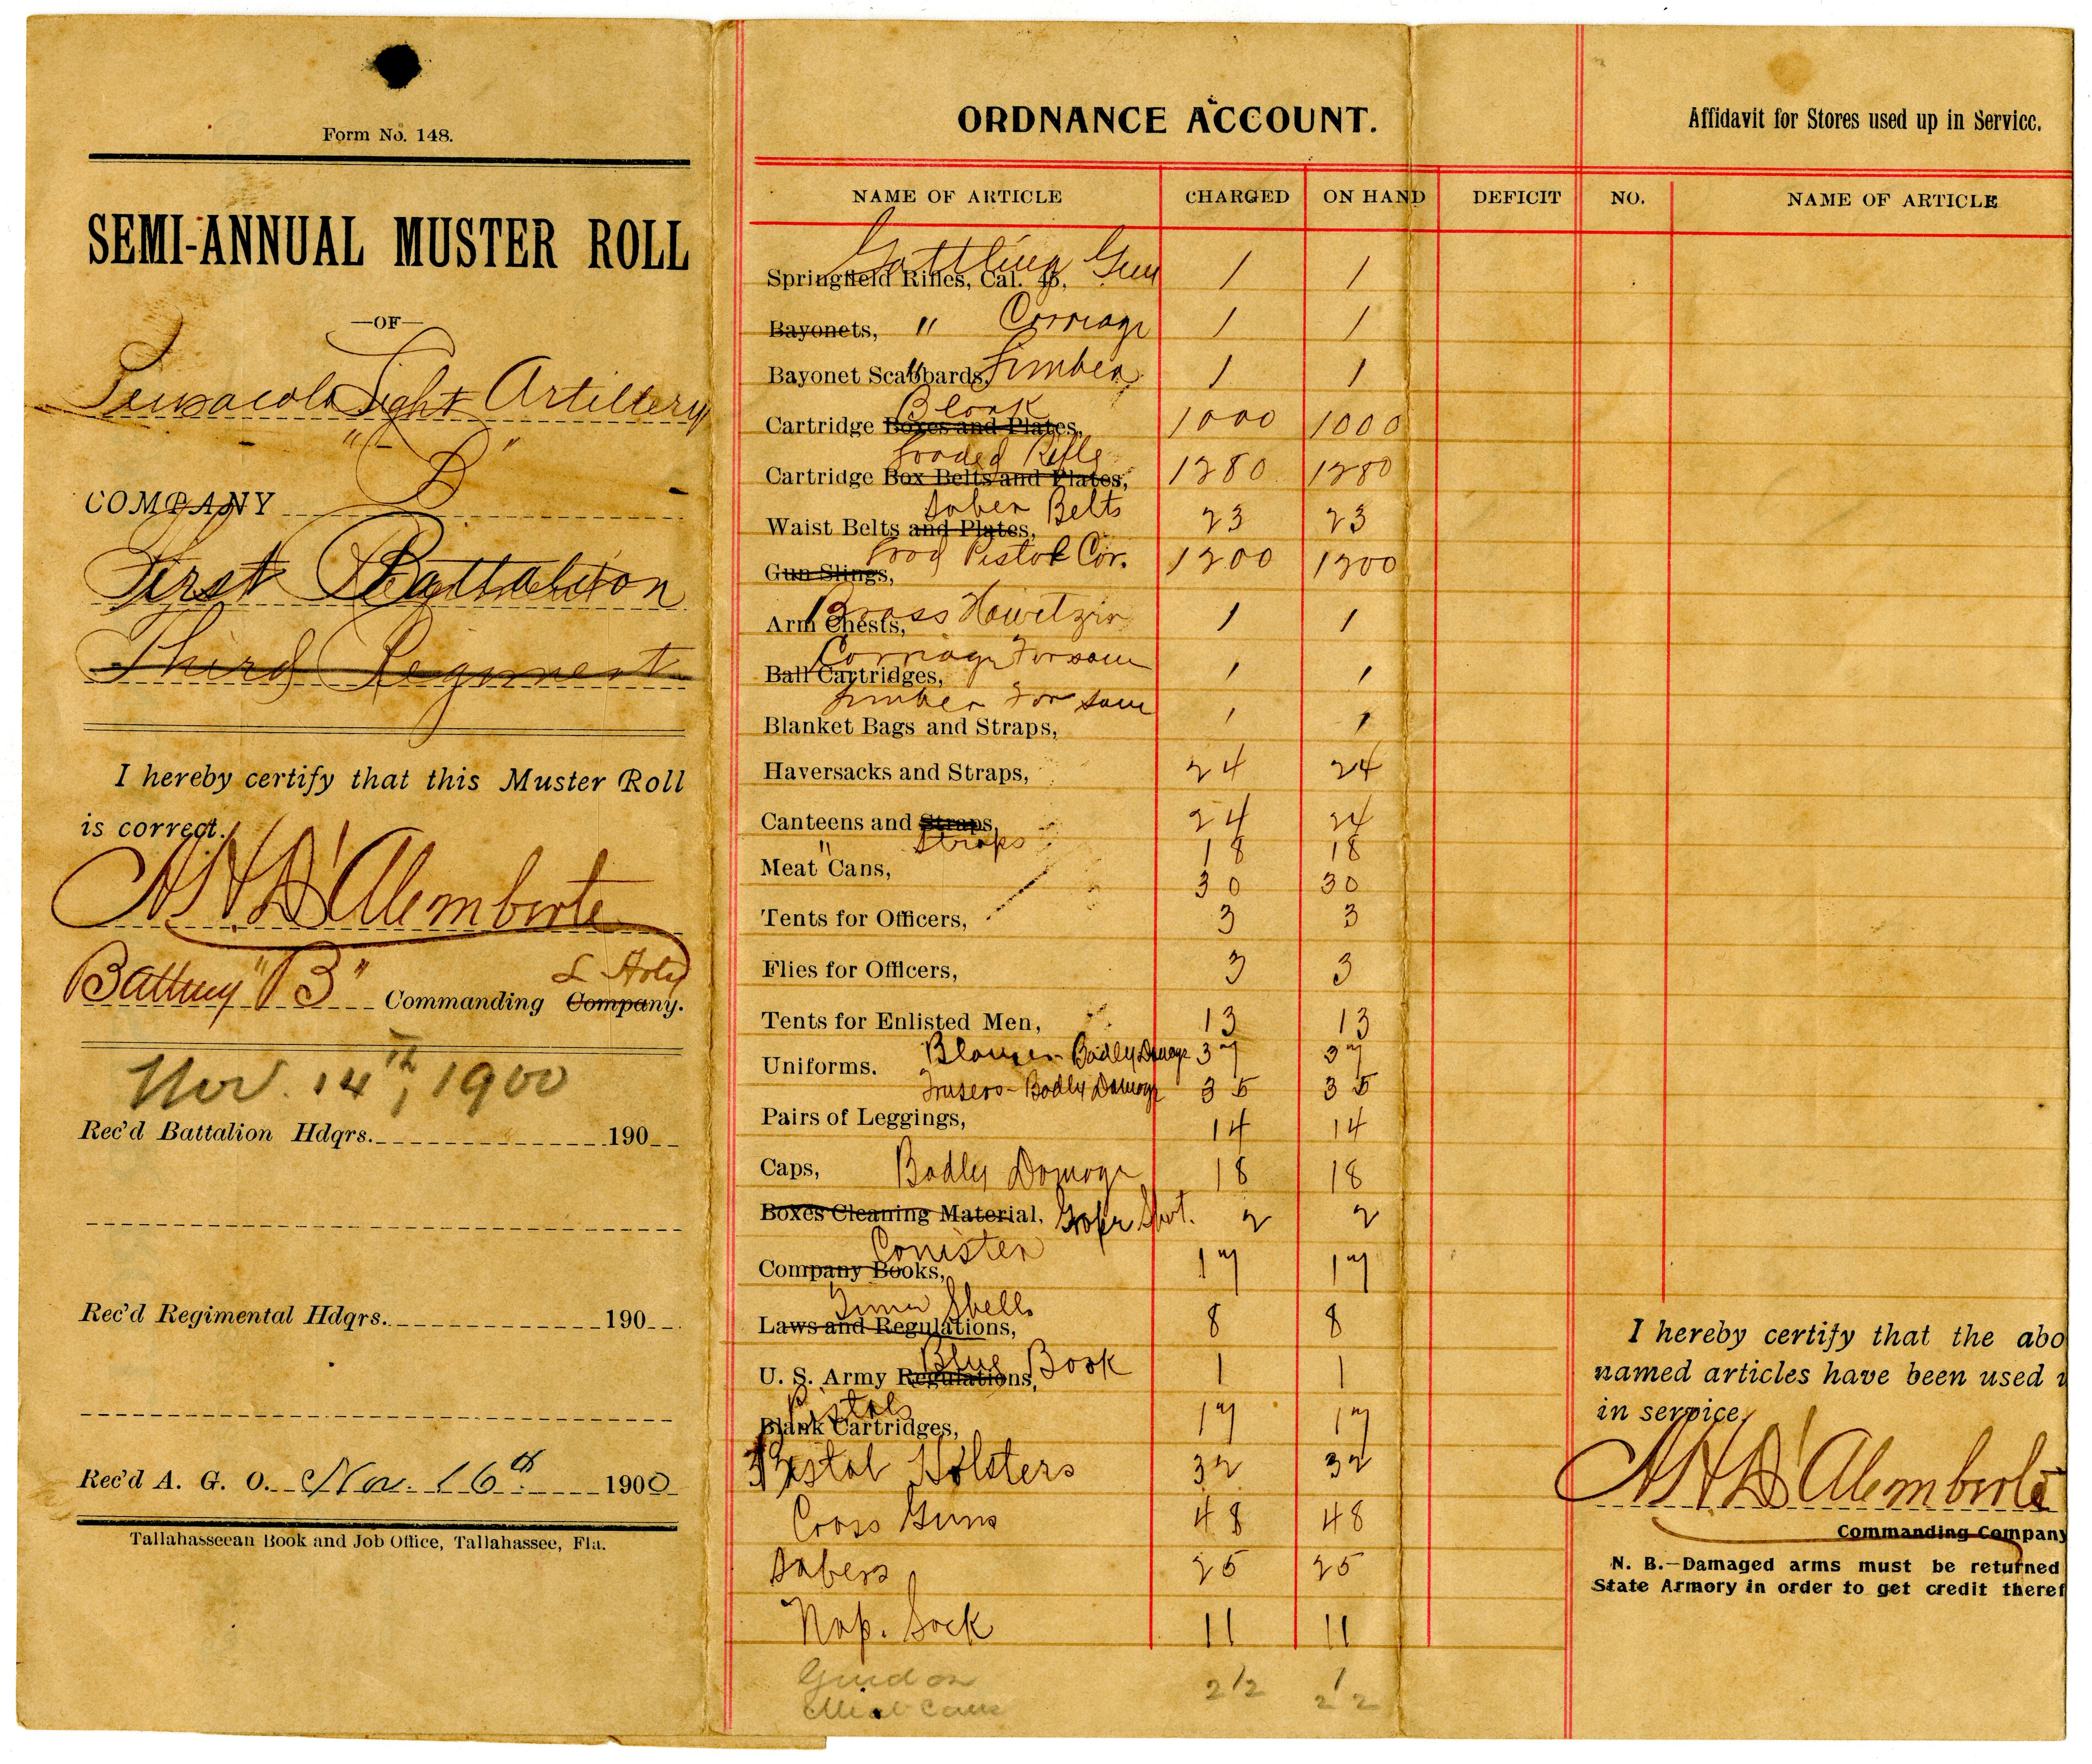 Form No. 148.
SEMI-ANNUAL MUSTER ROLL
—OF—
Pensacola Light Artillery
"B"
COMPANY
First Battalion
Third Regiment
I hereby certify that this Muster Roll
is correct.
A H D'Alemberte
Battery "B" L Arty
Commanding Company.
Nov. 14th, 1900
Rec'd Battalion Hdqrs. 190
Rec'd Regimental Hdqrs. 190
Rec'd A. G. O. Nov. 16th 1900
Tallahasseean Book and Job Office, Tallahassee, Fla.
ORDNANCE ACCOUNT.
NAME OF ARTICLE CHARGED ON HAND DEFICIT
Gattling Gun
Springfield Rifles, Cal. 45, 1 1
Bayonets, " Carriage 1 1
Bayonet Scabbards, " Limber 1 1
Blank
Cartridge Boxes and Plates, 1000 1000
Loaded Rifle
Cartridge Box Belts and Plates, 1280 1280
Saber Belts
Waist Belts and Plates, 23 23
Pistol Car.
Gun Slings, 1200 1200
Brass Howitzir
Arm Chests, 1 1
Carriage For same
Ball Cartridges, 1 1
Limber For same
Blanket Bags and Straps, 1 1
Haversacks and Straps, 24 24
Canteens and Straps, 24 24
" Straps 18 18
Meat Cans, 30 30
Tents for Officers, 3 3
Flies for Officers, 3 3
Tents for Enlisted Men, 13 13
Uniforms. Blouses - Badly Damage 37 37
Trusers - Badly Damage 35 35
Pairs of Leggings, 14 14
Caps, Badly Damage 18 18
Boxes Cleaning Material, Shot. 2 2
Conister
Company Books, 17 17
Shells
Laws and Regulations, 8 8
U. S. Army Regulations, Blue Book 1 1
Pistols
Blank Cartridges, 17 17
Pistol Holsters 32 32
Cross Guns 48 48
Sabers 25 25
Nap. Sack 11 11
Guidon 1
Meat Cans 22
Affidavit for Stores used up in Service.
NO. NAME OF ARTICLE
I hereby certify that the abo
named articles have been used
in service.
A H D'Alemberte
Commanding Company
N. B.—Damaged arms must be returned
State Armory in order to get credit theref